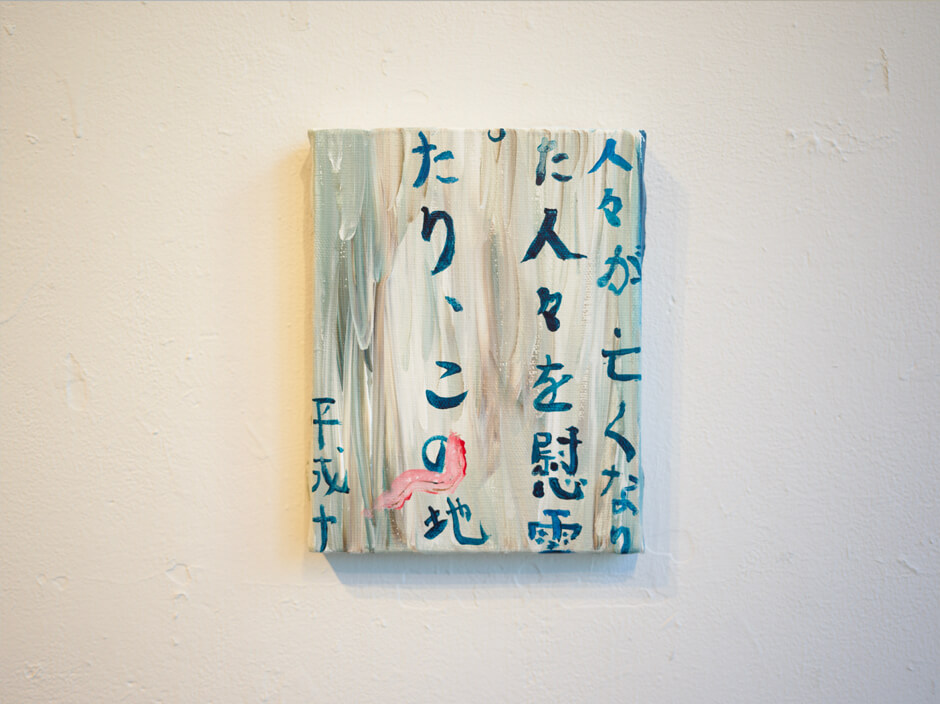 人々が亡くなり
た人々を慰霊
。
たり、この地
平成十